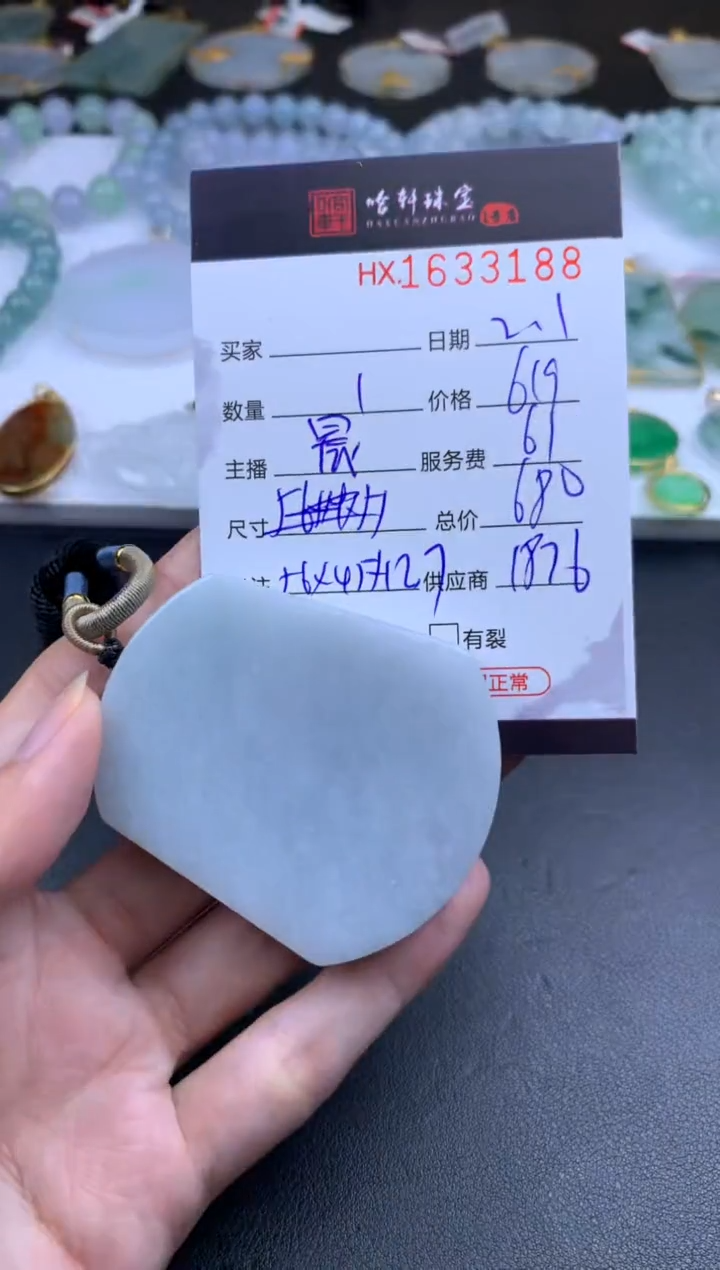 哈轩珠宝
HAXUANZHUBAO
HX.1633188
买家 日期 2.1
数量 1 价格 619
主播 晨 服务费 61
尺寸 总价 680
供应商 1876
有裂
正常